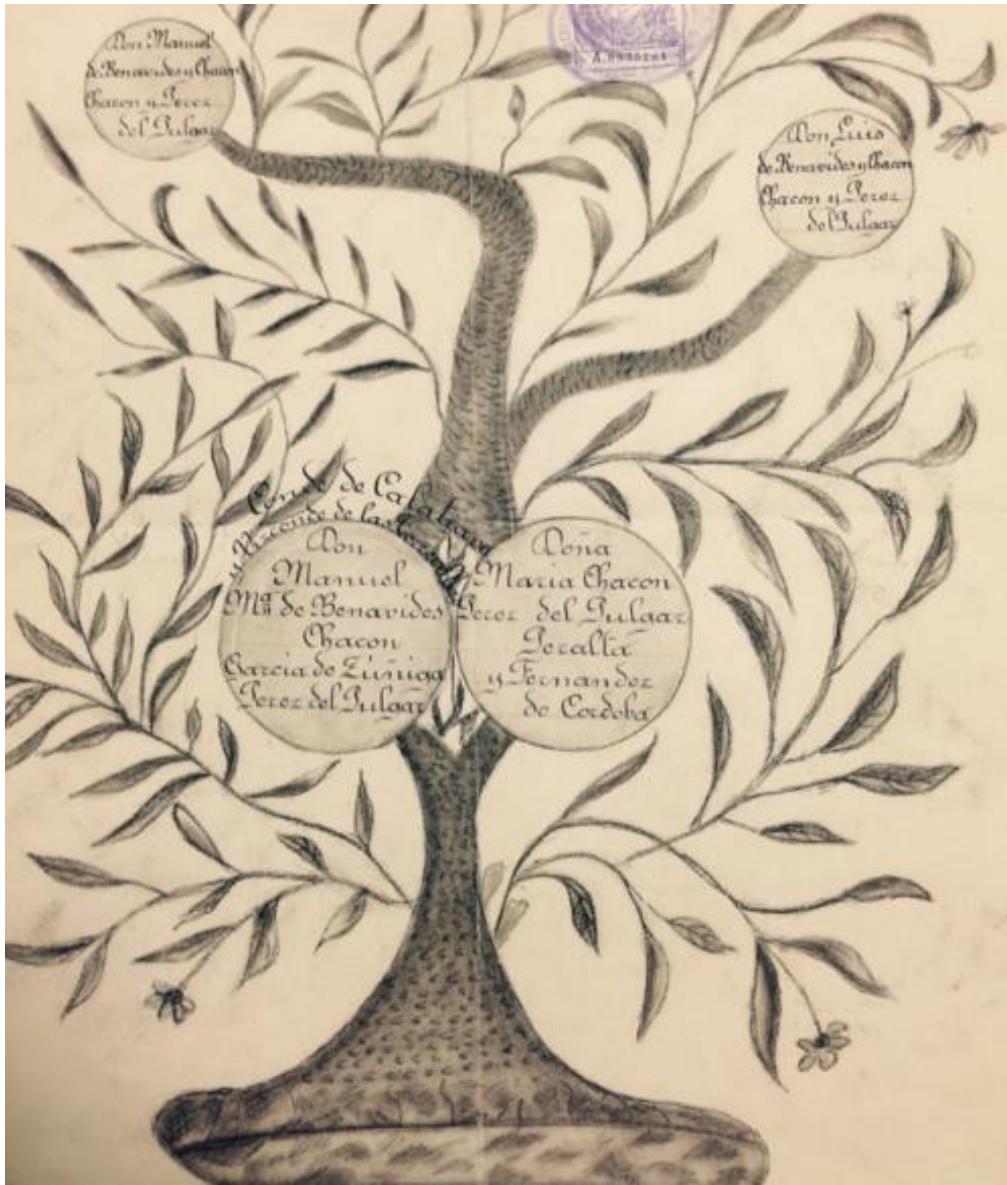 Don Manuel
de Benavides y Chacon
Chacon y Perez
del Pulgar
Don Luis
de Benavides y Chacon
Chacon y Perez
del Pulgar
Conde de Calatrava
y Vizconde de las
Don
Manuel
Mª de Benavides
Chacon
Garcia de Zúñiga
Perez del Pulgar
Doña
Maria Chacon
Perez del Pulgar
Peralta
y Fernandez
de Cordoba